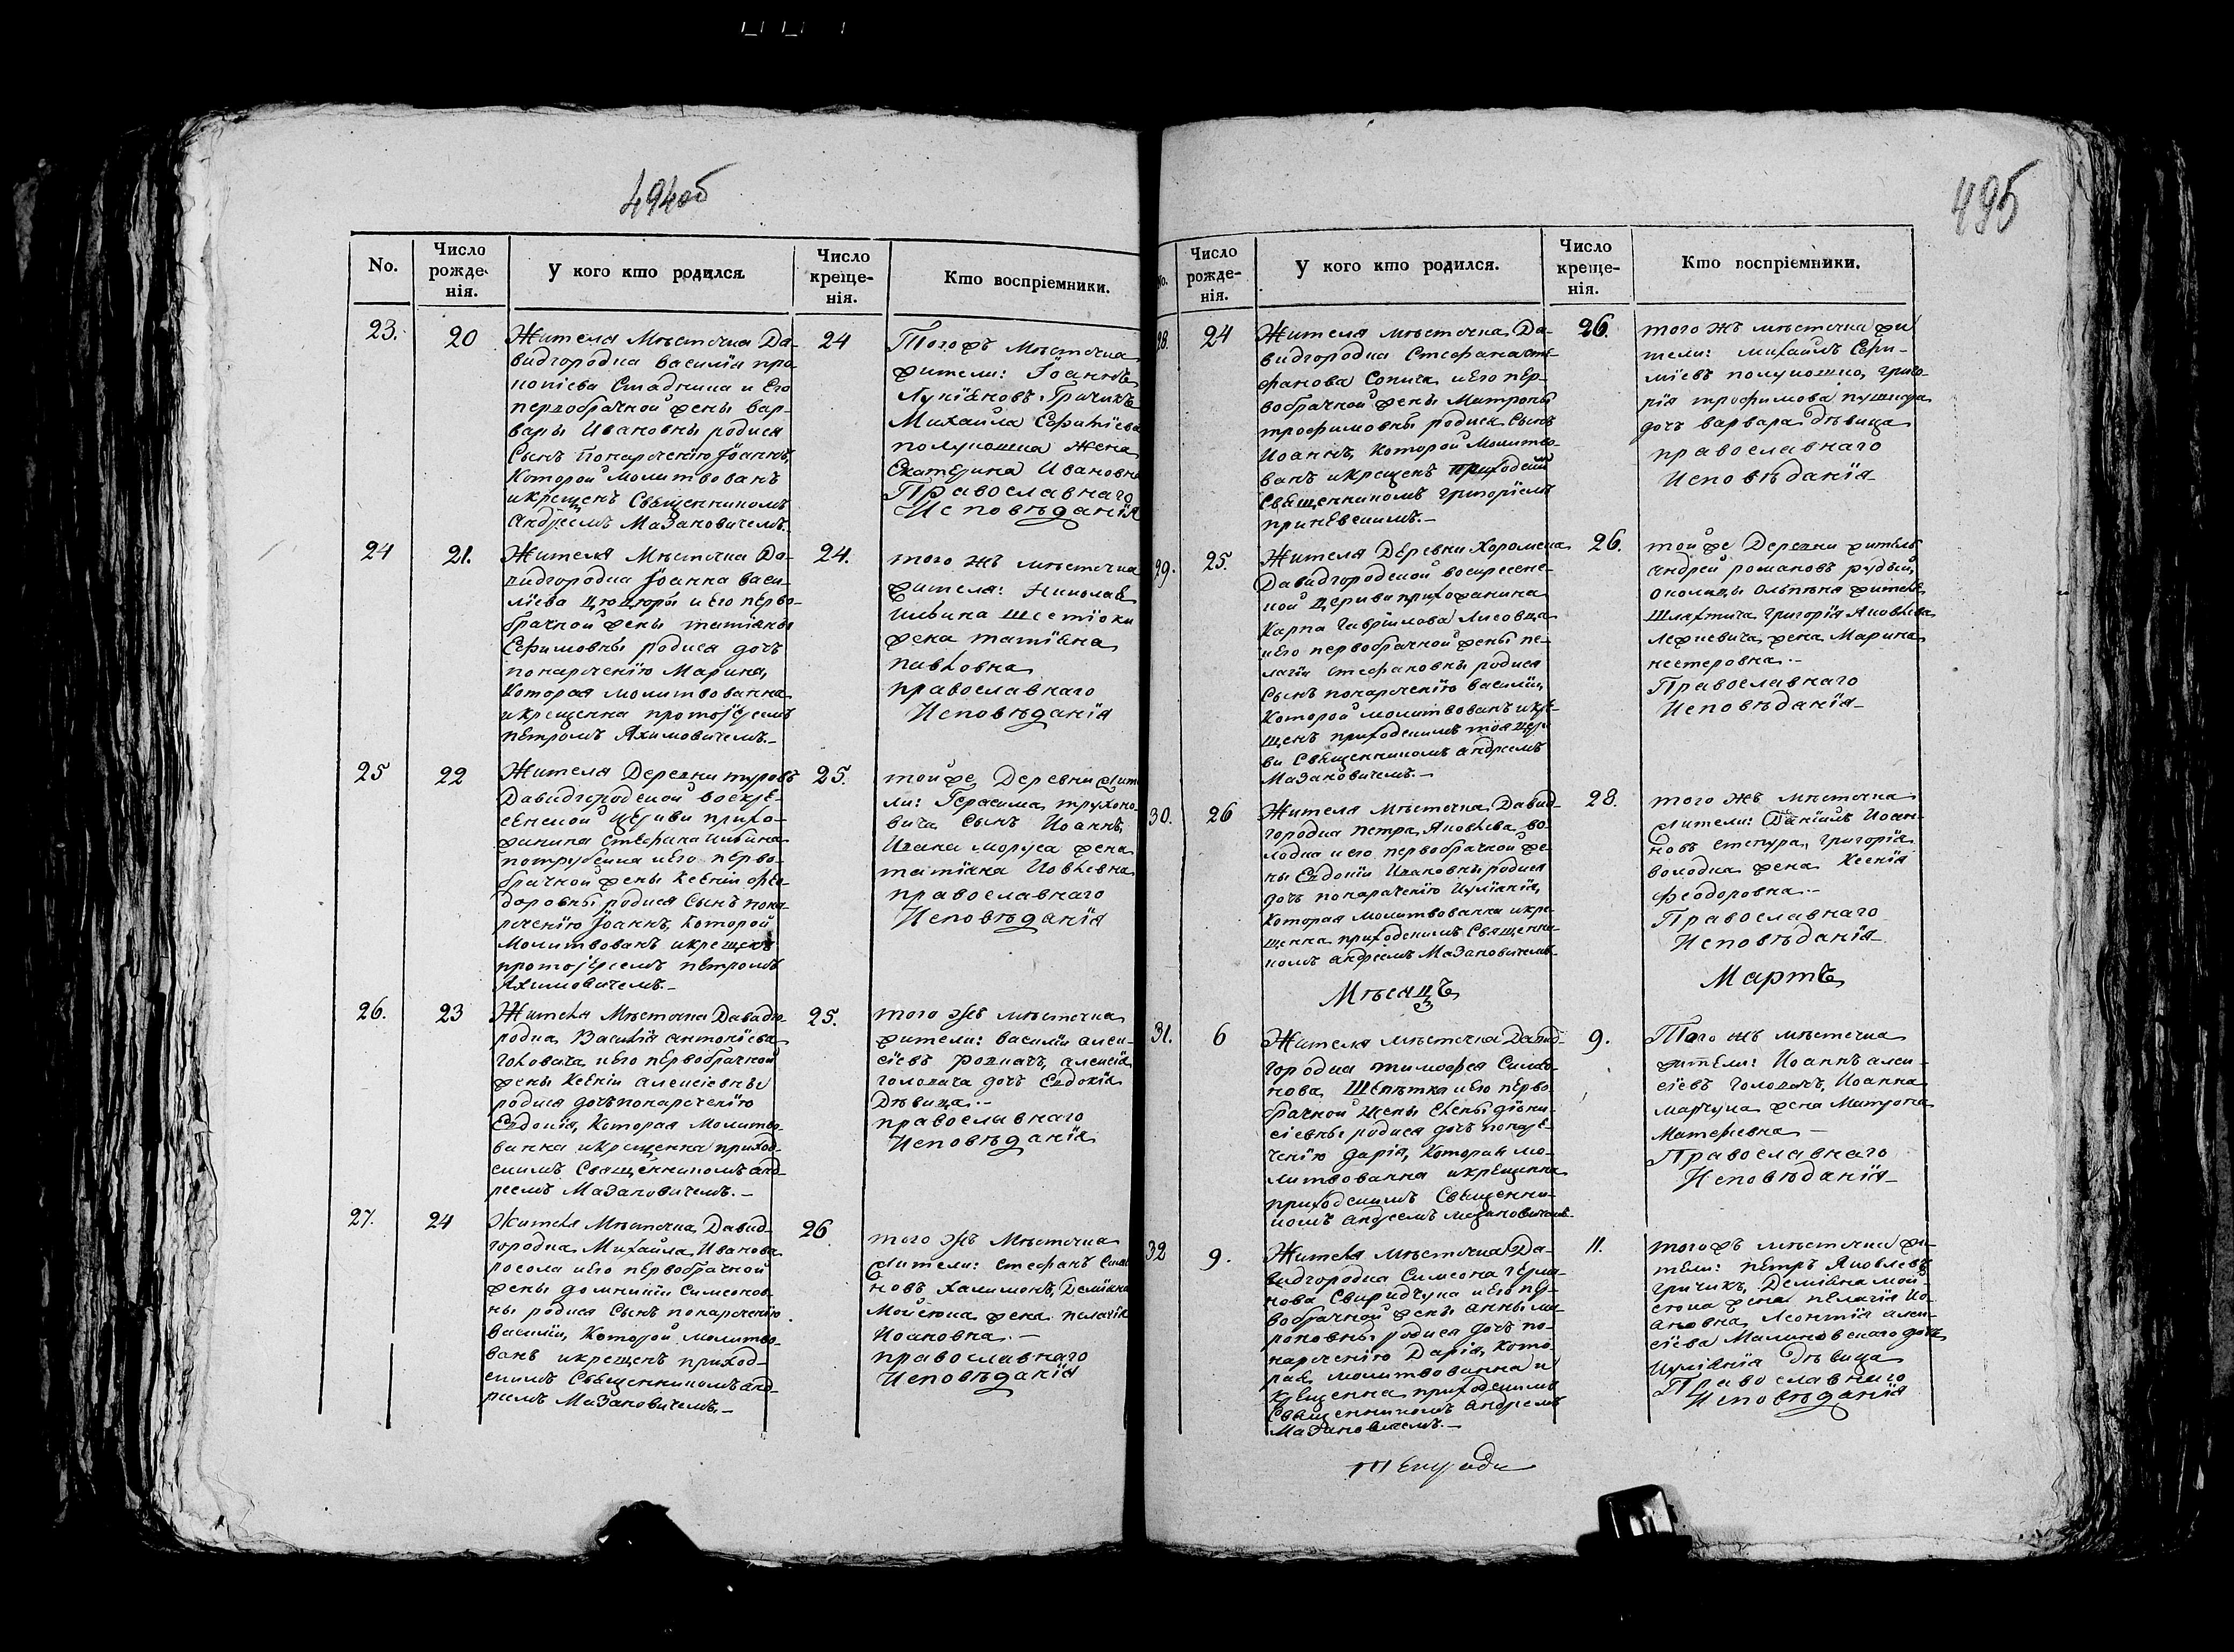 494об
No.
Число
рожде-
нія.
У кого кто родился.
Число
креще-
нія.
Кто воспріемники.
23.
20
Жителя Мѣстечка Да-
видгородка Василія про-
копіева Стадника и Его
первобрачной жены Вар-
вары Ивановны родися
Сынъ Понареченїю Іоаннъ,
Которой Молитвованъ
икрещенъ Священникомъ
Андреемъ Мазановичемъ.
24
Тогожъ Мѣстечка
жители: Іоаннъ
Лукїановъ Гричикъ
Михайла Ефимїева
полукошка Жена
Екатерина Ивановна
Православнаго
Исповѣданїя
24
21.
Жителя Мѣстечка Да-
видгородка Іоанна Васи-
лїева Цюцюры и Его перво-
брачной жены татїаны
Ефимовны родися дочъ
понареченїю Марина,
Которая молитвованна
икрещенна протоіереемъ
петромъ Яхимовичемъ.-
24.
того жъ мѣстечка
жителя: Николая
Ильина
жена татїана
павловна
православнаго
Исповѣданїя
25
22
Жителя Деревни туровъ
Давидгородской воскре-
сенской Церкви прихо-
жанина Стефана Ильина
и Его перво-
брачной жены Ксенїи фео-
доровны родися Сынъ пона-
реченїю Іоаннъ, Которой
Молитвованъ икрещенъ
протоіереемъ петромъ
Яхимовичемъ.-
25.
тойже Деревни жите
ли: Герасима трухоно-
вича Сынъ Иоаннъ,
Ивана Моруса жена
татїана Иовлевна
православнаго
Исповѣданїя
26.
23
Жителя Мѣстечка Давидго-
родка, Василїя Антонїева
Головача иЕго первобрачной
жены Ксенїи алексїевны
родися дочъ понареченїю
Евдокїя, Которая Молитво-
ванна икрещенна приход-
скимъ Священникомъ анд-
реемъ Мазановичемъ.-
25.
того жъ мѣстечка
жители: Василїй алек-
сїевъ родначъ, алексїя
головача дочъ Евдокїя
Дѣвица.-
православнаго
Исповѣданїя
27.
24
Жителя Мѣстечка Давид-
городка Михайла Иванова
росола иЕго первобрачной
жены домникїи Симеонов-
ны родися Сынъ понареченїю
Василїй, Которой молитво-
ванъ икрещенъ приход-
скимъ Священникомъ анд-
реемъ Мазановичемъ.-
26.
того жъ Мѣстечка
жители: Стефанъ
новъ Халимонъ, Демїана
Мойсюка жена пелагїя
Иоановна.-
православнаго
Исповѣданїя
495
No.
Число
рожде-
нія.
У кого кто родился.
Число
креще-
нія.
Кто воспріемники.
28.
24
Жителя мѣстечка Да-
видгородка Стефана сте-
фанова Сопича иЕго пер-
вобрачной жены Матроны
трофимовны родися Сынъ
Иоаннъ, Которой Молитво-
ванъ икрещенъ приходским
Священникомъ григорїемъ
26.
того жъ мѣстечка жи
тели: михайлъ Ефи-
мїевъ полукошко, григо-
рїя трофимова
дочъ варвара дѣвица
православнаго
Исповѣданїя
29.
25.
Жителя Деревни Хоромска
Давидгородской воскресенс-
кой Церкви прихожанина
Карпа гаврїилова Лисовца
иЕго первобрачной жены пе-
лагїи Стефановны родися
Сынъ понареченїю василїй,
Которой молитвованъ икре-
щенъ приходскимъ тоя Церк
ви Священникомъ андреемъ
Мазановичемъ.-
26.
тойже Деревни житель
андрей романовъ рудый,
околицы Ольпѣна жителя
Шляхтича григорїя Яковлева
жена Марина
нестеровна.-
Православнаго
Исповѣданїя
30.
26
Жителя Мѣстечка Давид-
городка петра, Яковлева во-
лодка и его первобрачной же-
ны Евдокїи Ивановны родися
дочъ понареченїю Иулїанїя,
Которая молитвованна икре-
щенна приходскимъ Священни-
комъ андреемъ Мазановичемъ
28.
того жъ мѣстечка
жители: Данїилъ Иоан-
новъ григорїя
володка жена Ксенїя
феодоровна.-
Православнаго
Исповѣданїя
Мѣсяцъ
Мартъ
31.
6
Жителя мѣстечка Давид-
городка тимофея Симео-
нова, иЕго перво-
брачной жены Елены дїони-
сїевны родися дочъ понаре-
ченїю дарїя, Которая мо-
литвованна икрещенна
приходскимъ Священни-
комъ андреемъ мазановичемъ
9.
Того жъ мѣстечка
жители: Иоаннъ алек-
сїевъ головачъ, Иоанна
марчука жена Матрона
Матфеевна-
Православнаго
Исповѣданїя
32
9.
Жителя мѣстечка Да-
видгородка Симеона герма-
нова Свиридчука иЕго пер-
вобрачной жены анны ми-
роновны родися дочъ по-
нареченїю Дарїя, Кото-
рая молитвованна и
крещенна приходскимъ
Священникомъ андреемъ
Мазановичемъ.-
11.
тогожъ мѣстечка жи-
тели: петръ Яковлевъ
гричикъ, Демїана мой-
сюка жена пелагїя Ио-
ановна, Леонтїя алек-
сїева Малиновскаго дочъ
Иулїанїя дѣвица
Православнаго
Исповѣданїя